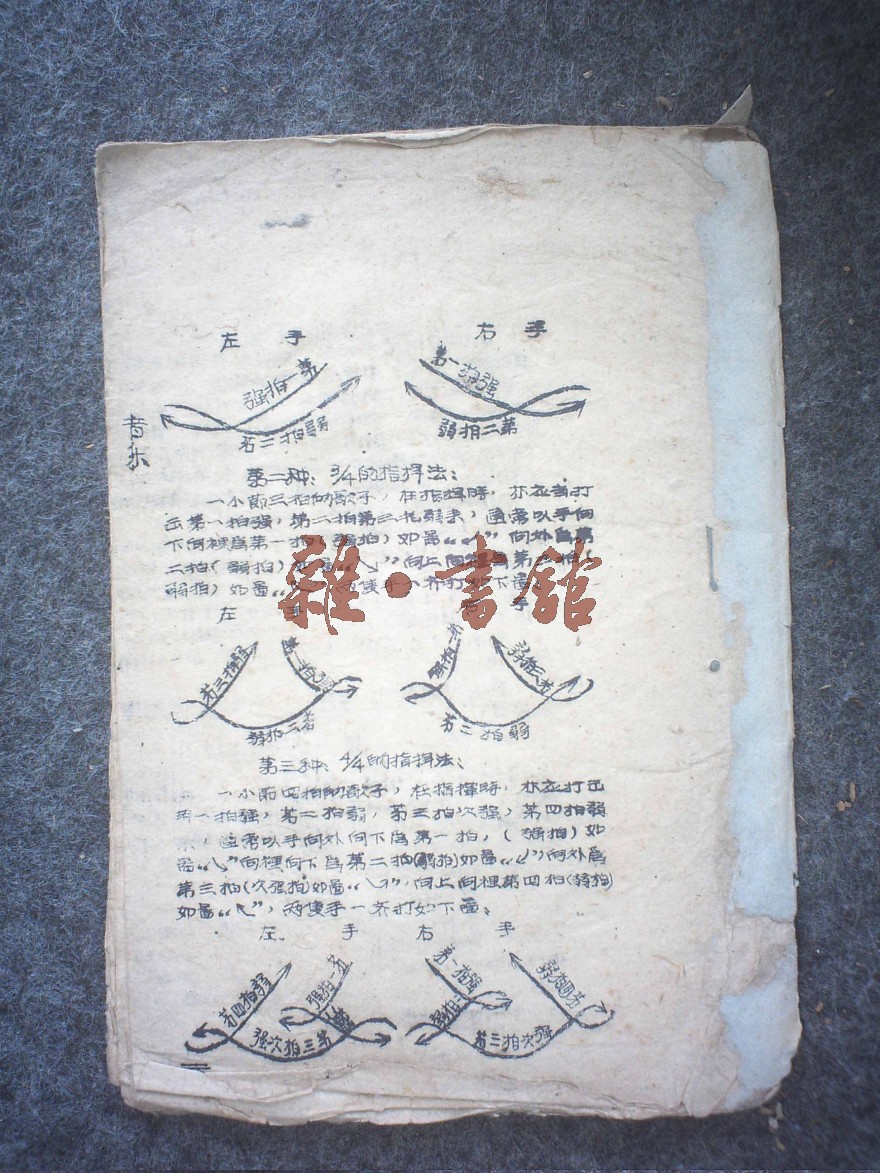 左 手 右 手
强拍一第
第一拍强
弱拍二第
弱拍二第
音乐
第二种：3/4的指挥法：
一小節三拍的歌子，在指揮時，亦应当打
出第一拍强，第二拍第三拍弱来，通常以手向
下向裡爲第一拍（强拍）如圖“ ”向外爲第
二拍（弱拍）如圖“ ”向上向 第三拍（
弱拍）如圖 两隻手一齐打如下圖：
雜·書館
左 手
第三拍弱
第一拍强
弱拍三第
弱拍二第
第二拍弱
第三种：4/4的指挥法：
一小節四拍的歌子，在指揮時，亦应打出
第一拍强，第二拍弱，第三拍次强，第四拍弱
来，通常以手向外向下爲第一拍，（强拍）如
圖“ ”向裡向下爲第二拍(弱拍)如圖“ ”向外爲
第三拍(次强拍)如圖“ ”，向上向裡第四拍(弱拍)
如圖“ ”，两隻手一齐打如下圖：
左 手 右 手
第四拍弱
强拍一第
第一拍强
弱拍四第
强次拍三第
第三拍次强